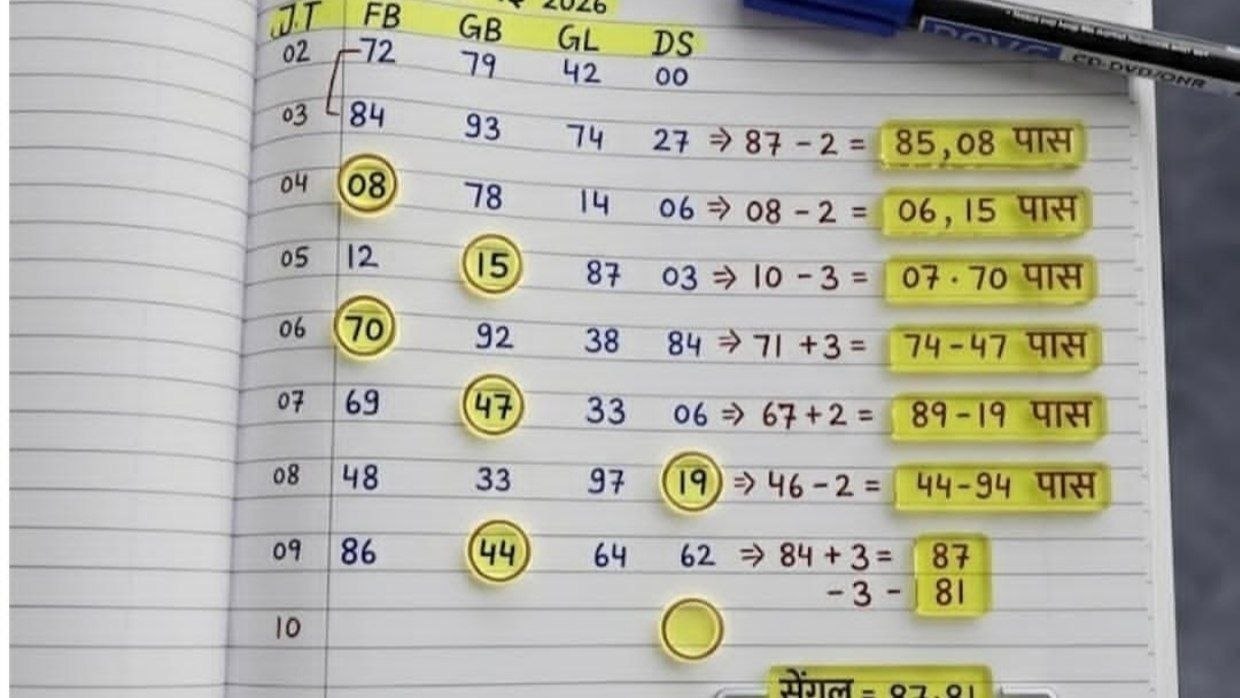 2026
J.T FB GB GL DS
02 72 79 42 00
03 84 93 74 27 ⇒ 87 - 2 = 85,08 पास
04 08 78 14 06 ⇒ 08 - 2 = 06,15 पास
05 12 15 87 03 ⇒ 10 - 3 = 07·70 पास
06 70 92 38 84 ⇒ 71 + 3 = 74-47 पास
07 69 47 33 06 ⇒ 67 + 2 = 89-19 पास
08 48 33 97 19 ⇒ 46 - 2 = 44-94 पास
09 86 44 64 62 ⇒ 84 + 3 = 87
- 3 - 81
10
सेंगल = 87.81
CD-DVD/OHR